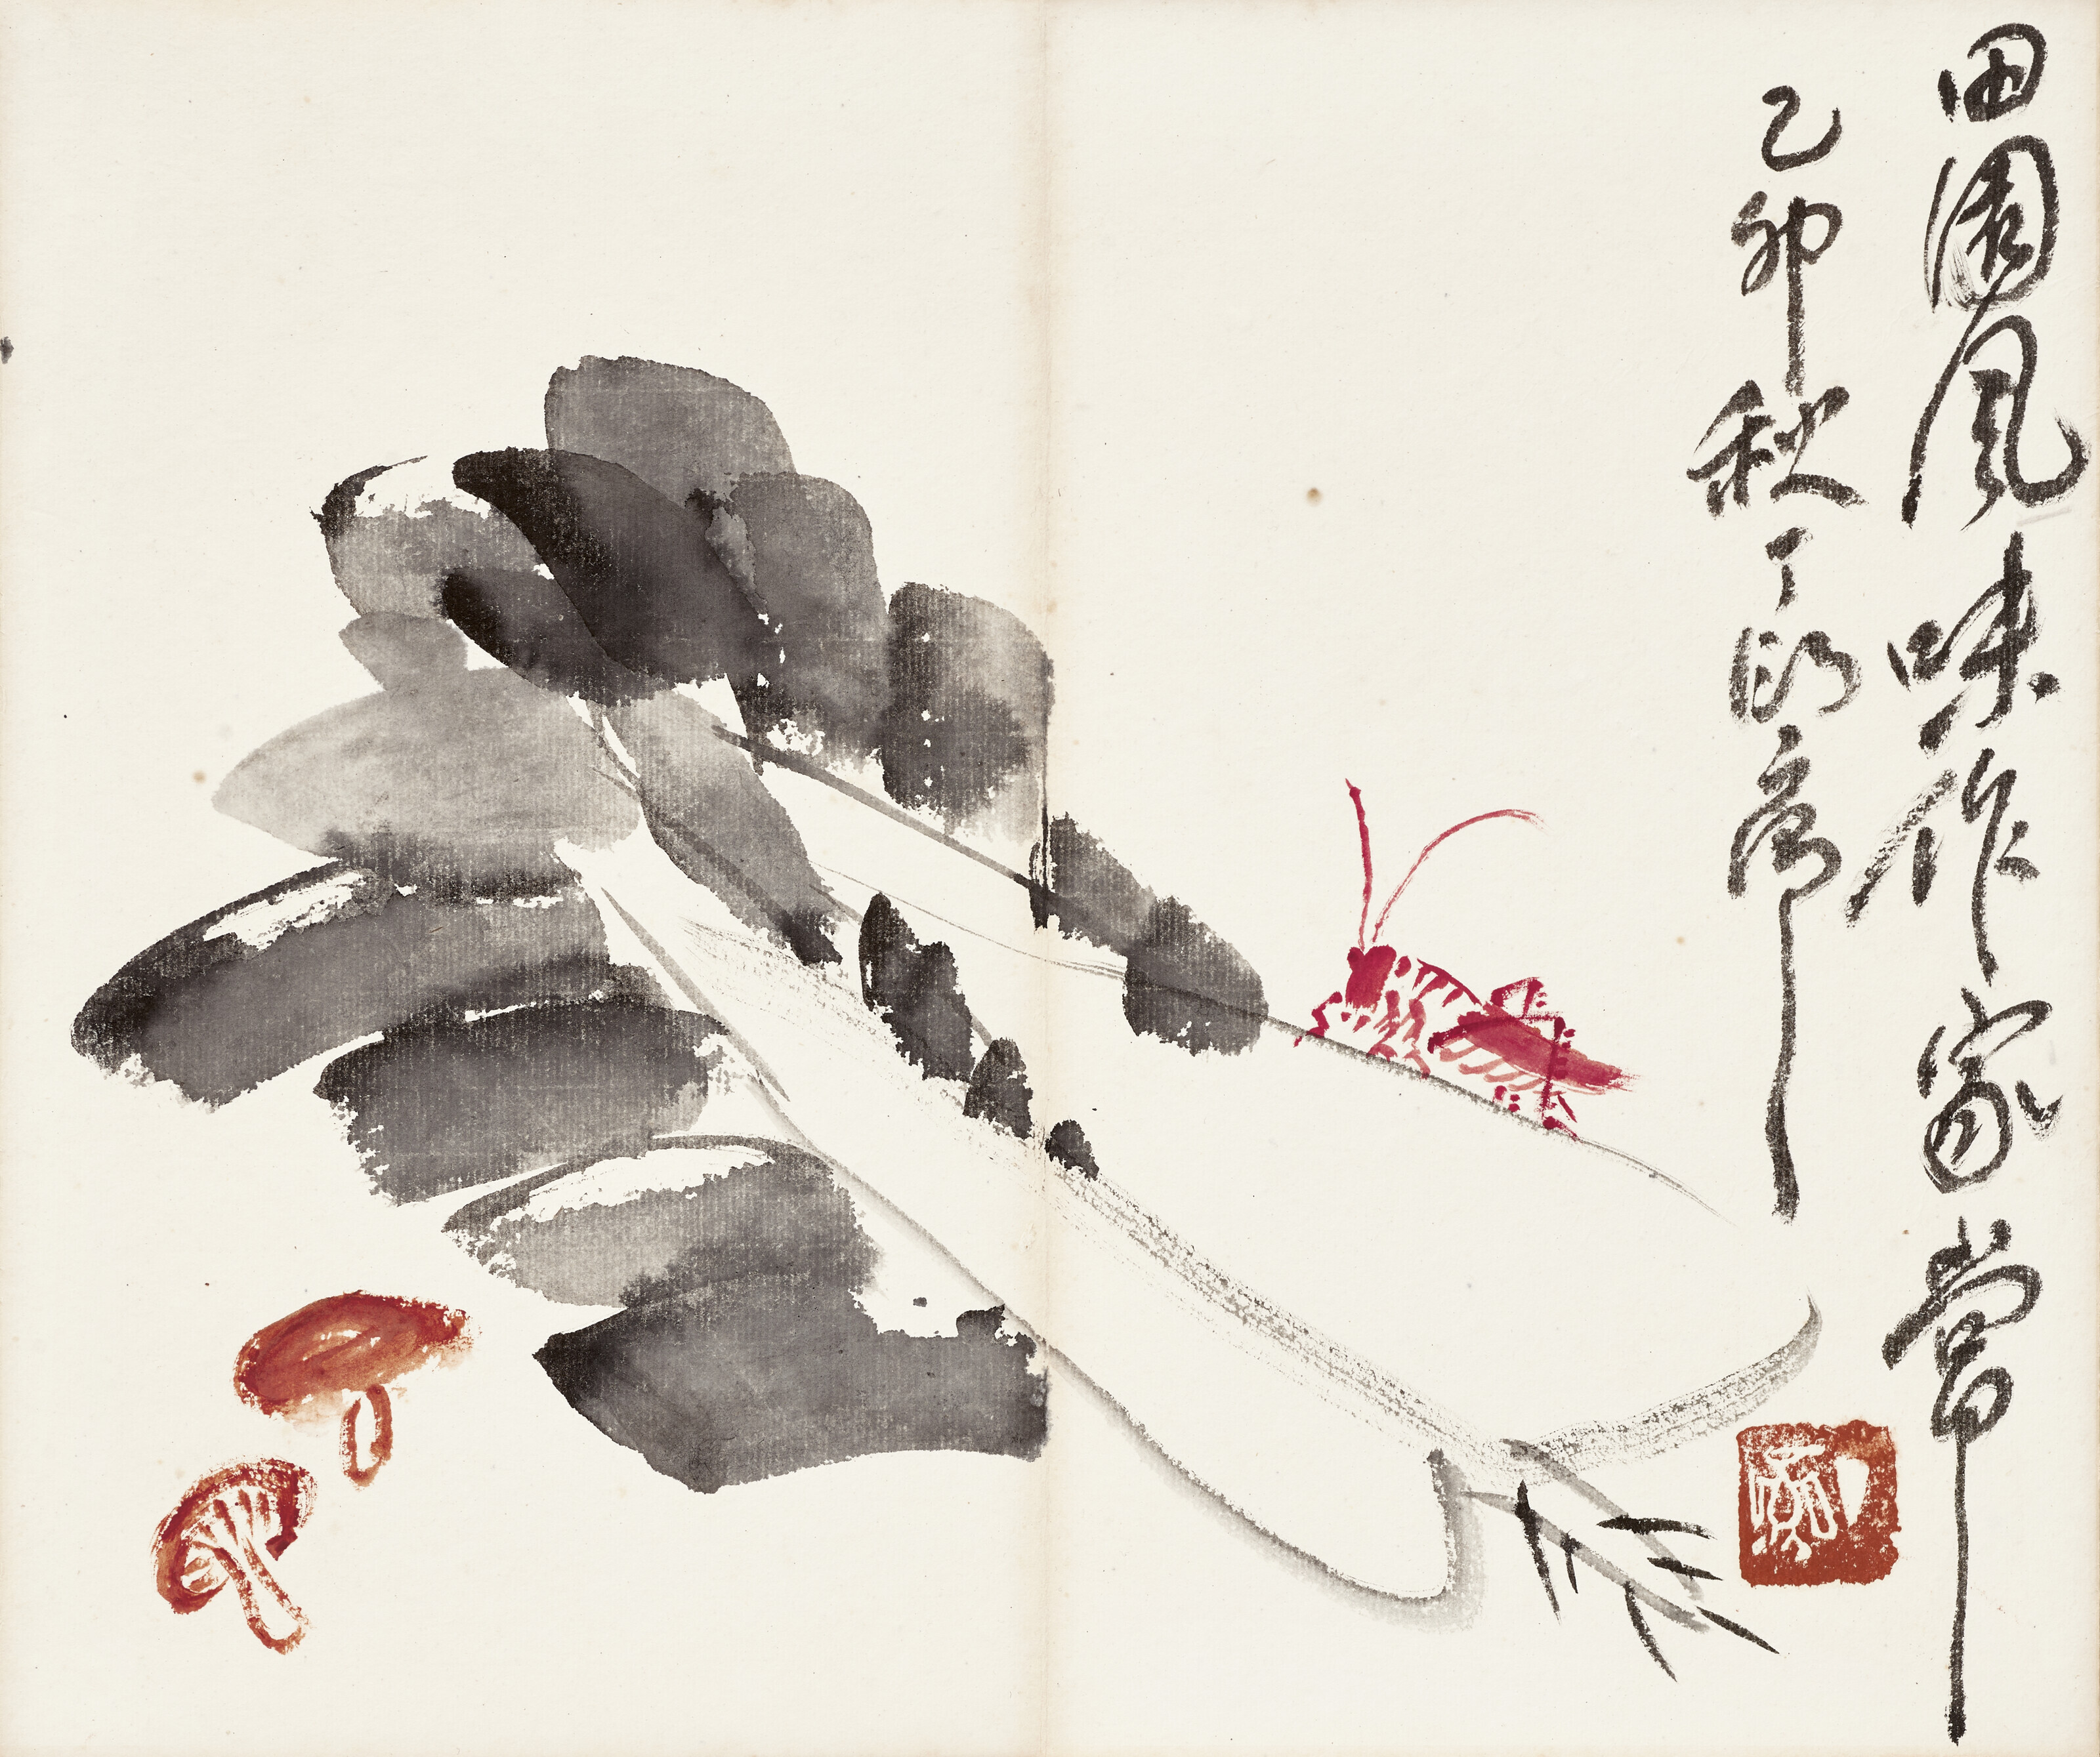 田園風味作家常
乙卯秋丁衍庸